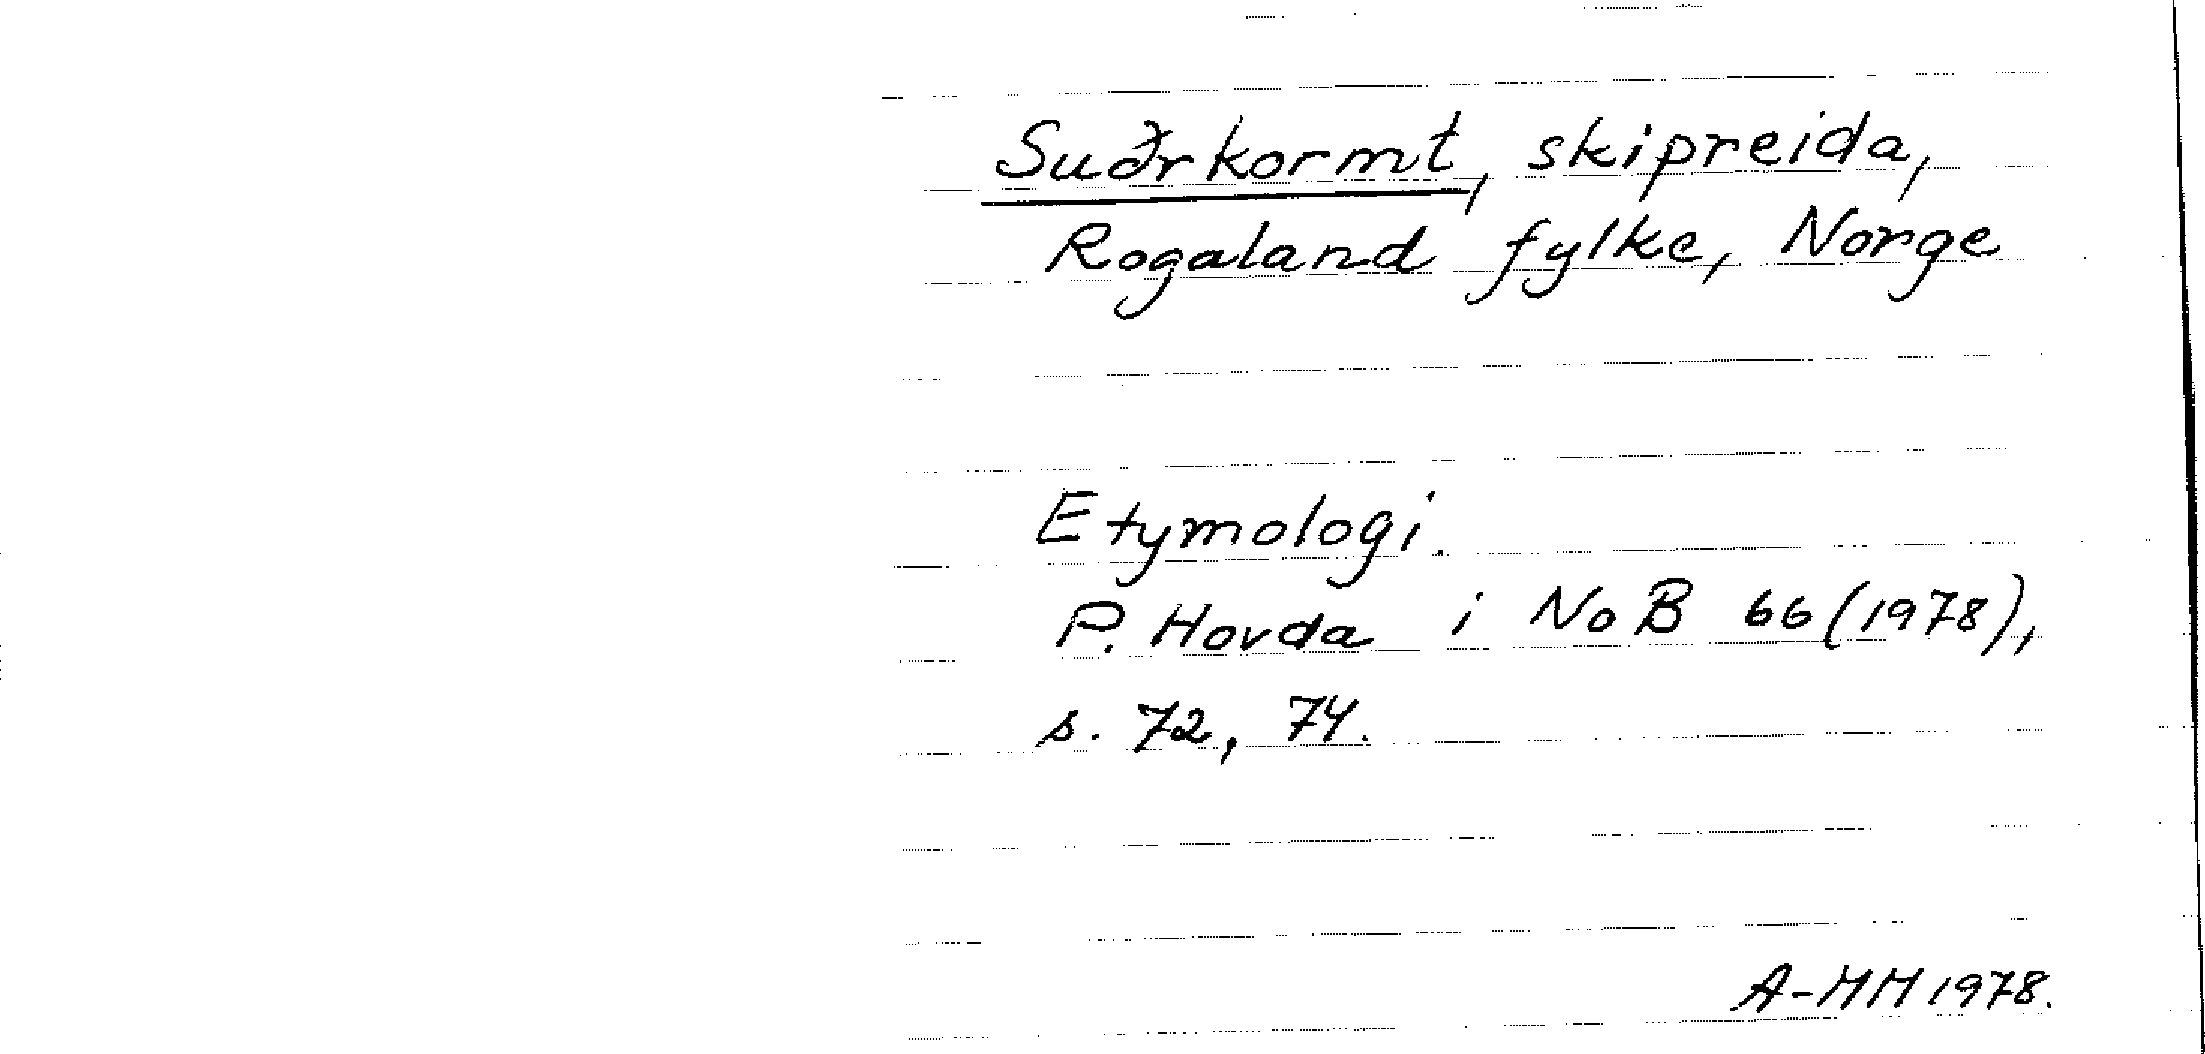 Suðrkormt, skipreida,
Rogaland fylke, Norge
Etymologi.
P. Hovda i NoB 66 (1978),
s. 72, 74.
A-MH 1978.